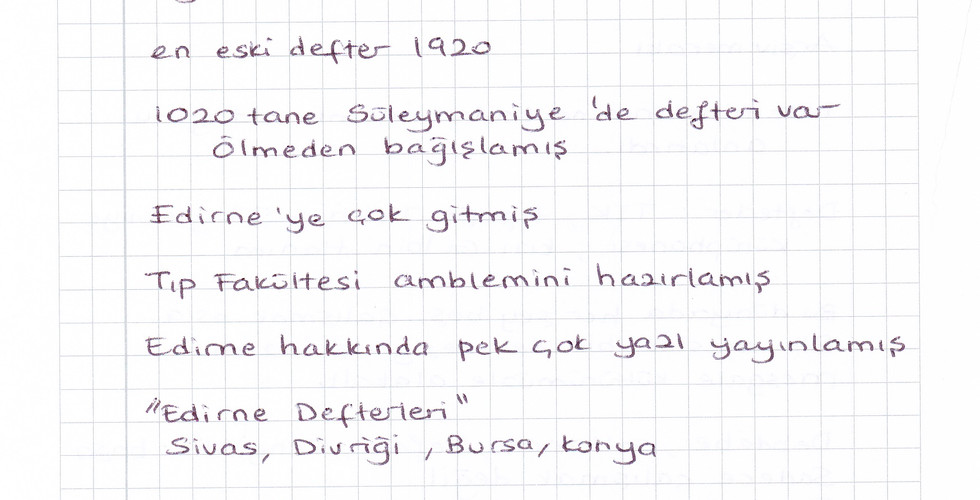 en eski defter 1920
1020 tane Süleymaniye 'de defteri var
Ölmeden bağışlamış
Edirne 'ye çok gitmiş
Tıp Fakültesi amblemini hazırlamış
Edirne hakkında pek çok yazı yayınlamış
"Edirne Defterleri"
Sivas, Divriği, Bursa, Konya